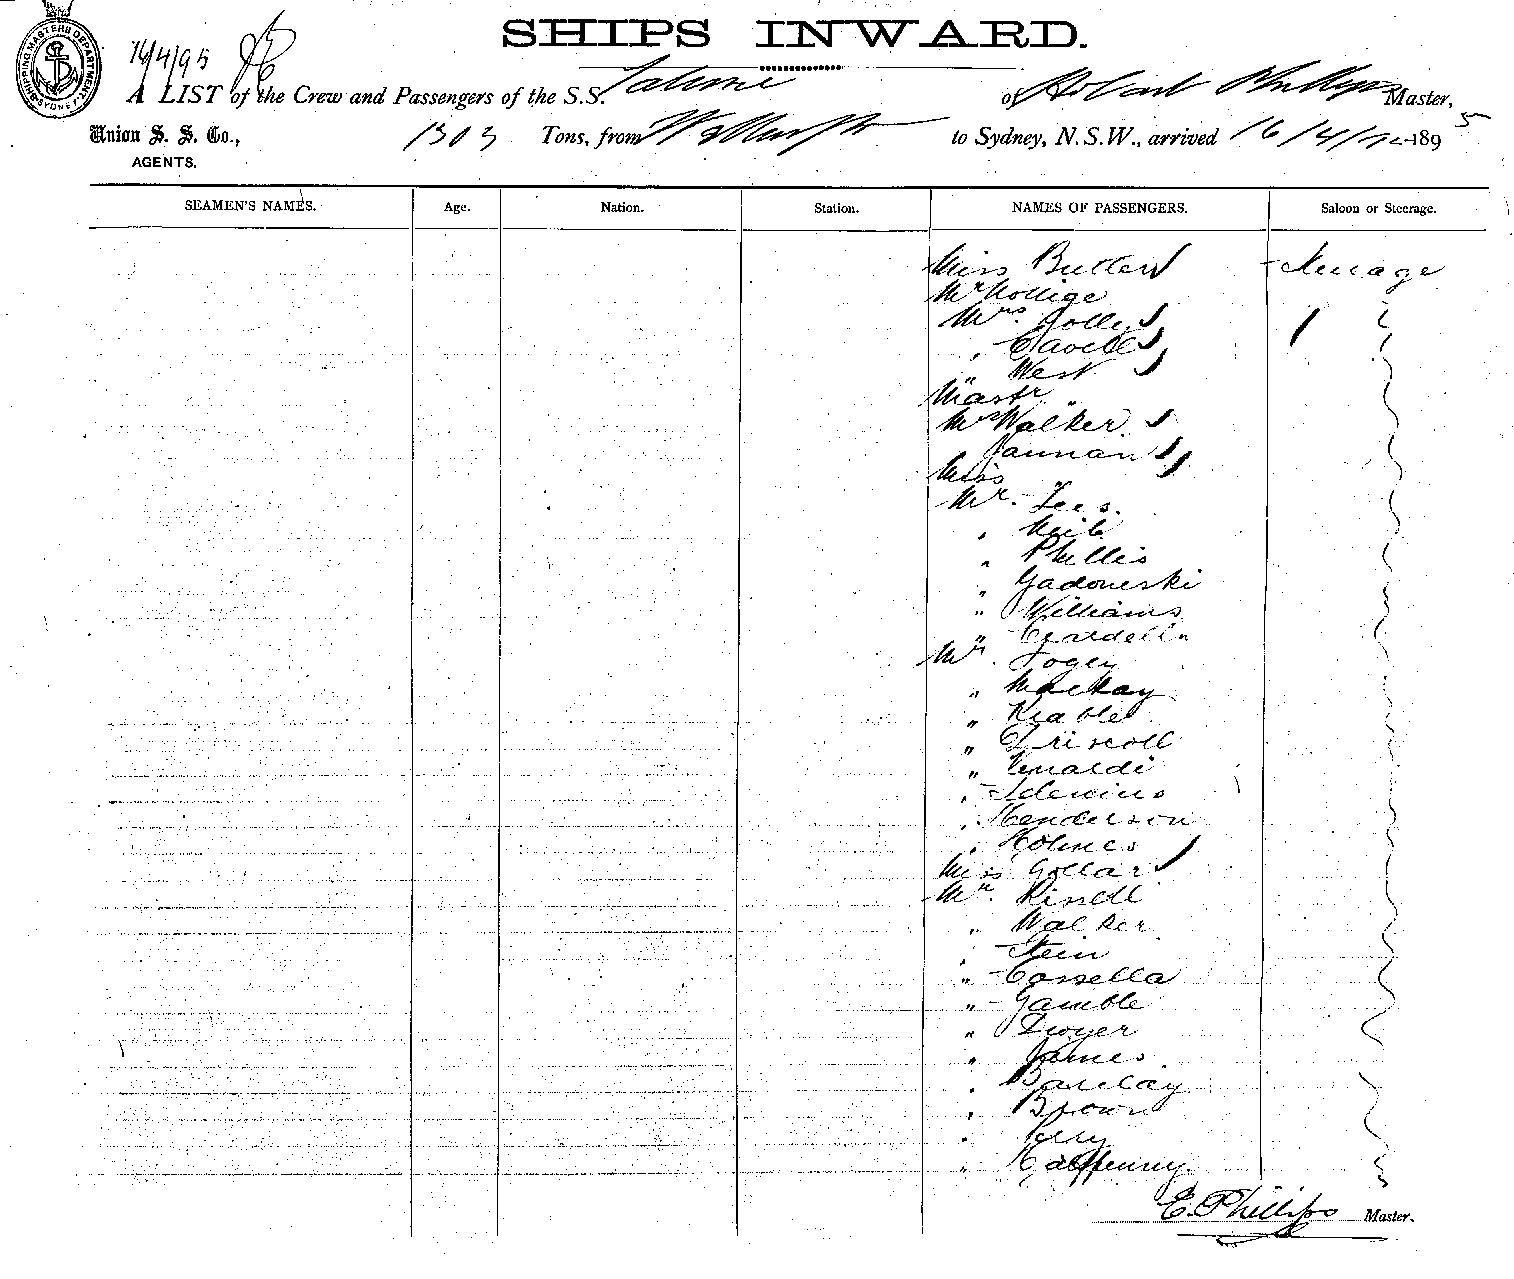 SHIPPING MASTERS DEPARTMENT SYDNEY
16/4/95
SHIPS INWARD.
A LIST of the Crew and Passengers of the S.S. of Robert Phillips Master,
Union S. S. Co., 1303 Tons, from to Sydney, N.S.W., arrived 16/4/ 1895
AGENTS.
SEAMEN'S NAMES. Age. Nation. Station. NAMES OF PASSENGERS. Saloon or Steerage.
Miss Butler Steerage
Mr
Mrs.
" 
" West
Mastr "
Mr Walker
Miss "
Mr. Lees.
" 
" Phillis
" Gadowski
" Williams
" 
Mr. Fogey
" MacKay
" Keable
" Driscoll
" 
" 
" Henderson
" Holmes
Miss Gollar
Mr.
" Walker
" Stein
" Cossella
" Gamble
" Dwyer
" James
" Barclay
" Brown
" Perry
" Halfpenny
E. Phillips Master.